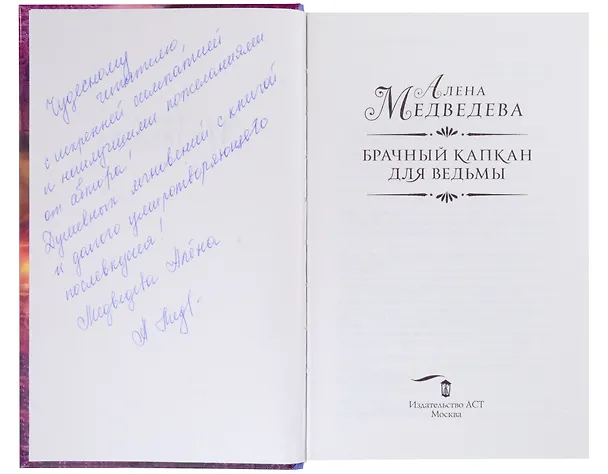 Чудесному
читателю,
с искренней симпатией
и наилучшими пожеланиями
от автора!
Душевных мгновений с книгой
и долгого умиротворяющего
послевкусия!
Медведева Алёна
А Медв
Алена
Медведева
БРАЧНЫЙ КАПКАН
ДЛЯ ВЕДЬМЫ
Издательство АСТ
Москва